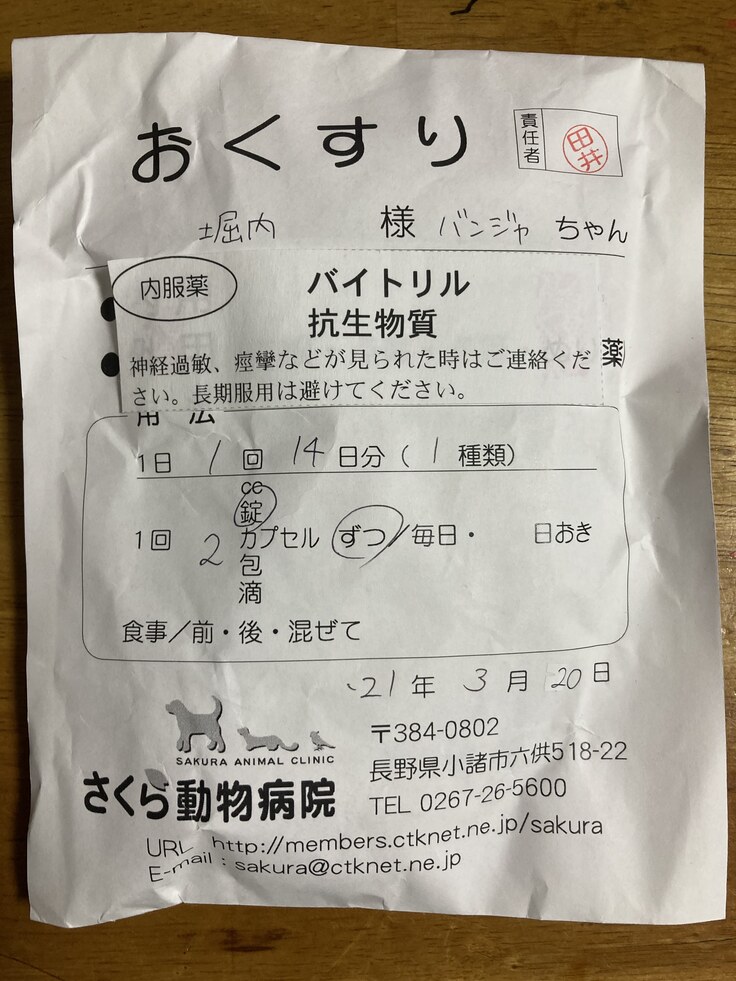 おくすり
責任者
田井
堀内 様 バンジャ ちゃん
内服薬
バイトリル
抗生物質
薬
神経過敏、痙攣などが見られた時はご連絡くだ
さい。長期服用は避けてください。
用法
1日 1 回 14 日分( 1 種類)
cc
錠
1回 2 カプセル ずつ/毎日・ 日おき
包
滴
食事/前・後・混ぜて
'21年 3月 20日
SAKURA ANIMAL CLINIC
さくら動物病院
〒384-0802
長野県小諸市六供518-22
TEL 0267-26-5600
URL http://members.ctknet.ne.jp/sakura
E-mail : sakura@ctknet.ne.jp